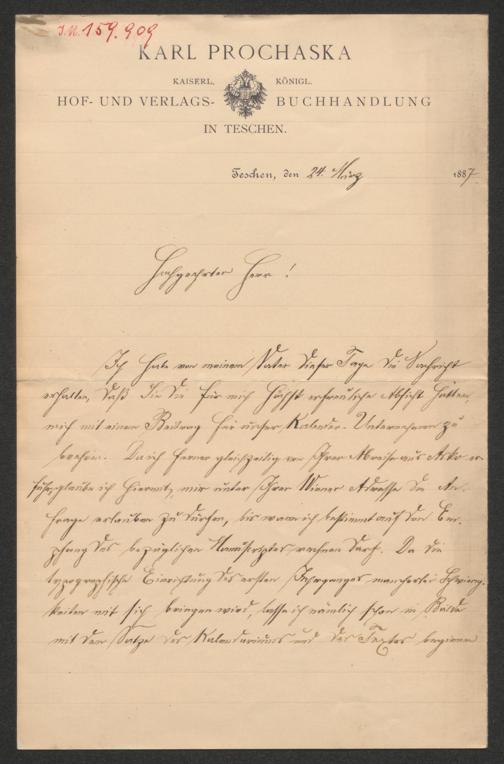 J.N. 159.909
KARL PROCHASKA
KAISERL. KÖNIGL.
HOF- UND VERLAGS- BUCHHANDLUNG
IN TESCHEN.
Teschen, den 24. März 1887.
Hochgeehrter Herr!
Ich habe von meinem Vater dieser Tage die Nachricht
erhalten, daß Sie die für mich höchst erfreuliche Absicht hätten,
mich mit einem Beitrag für unser Kalender-Unternehmen zu
Da ich ferner gleichzeitig von Ihrer Abreise aus er-
glaube ich hiermit, mir unter Ihrer Wiener Adresse die An-
frage erlauben zu dürfen, bis wann ich bestimmt auf den Em-
pfang des bezüglichen Manuscriptes rechnen darf. Da die
typographische Einrichtung des ersten Jahrganges mancherlei Schwierig-
keiten mit sich bringen wird, lasse ich nämlich schon in Bälde
mit dem Satze des Kalendariums und des Textes beginnen